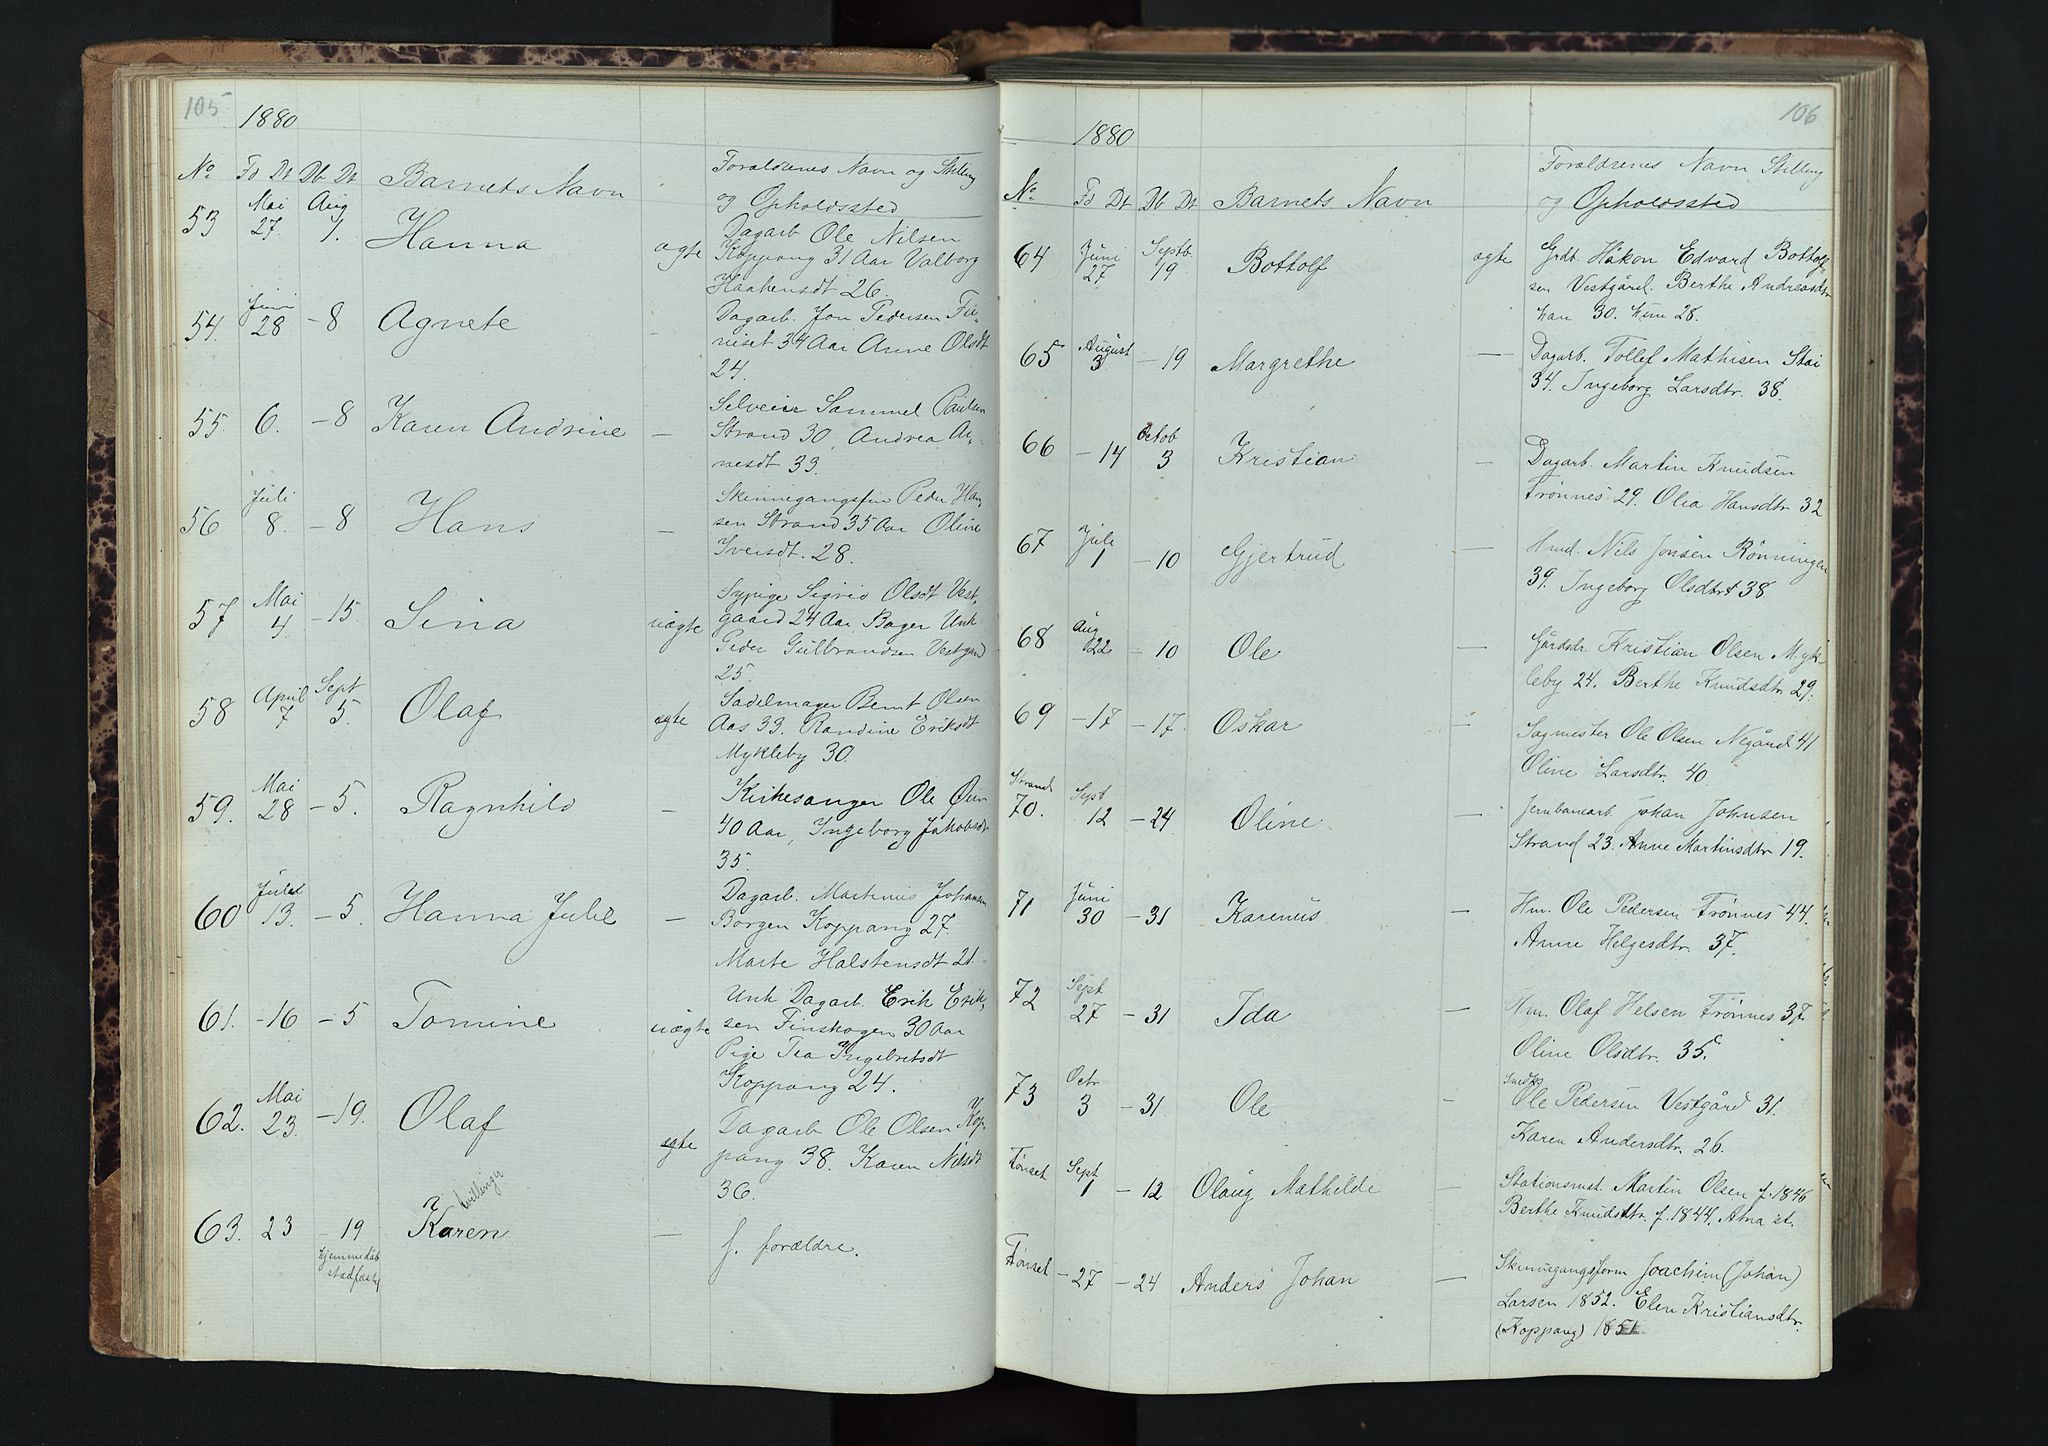 105
1880
No Fd Dt Db Dt Barnets Navn Forældrenes Navn og Stilling
og Opholdssted
53 Mai 27. Aug 1. Hanna ægte Dagarb Ole Nilsen
Koppang 31 Aar Valborg
Haakensdt 26.
54. Juni 28 - 8 Agnete - Dagarb. Jon Pedersen
34 Aar Anne Olsdt
24.
55 6. - 8 Karen Andrine - Selveier Sammel Paulsen
Strand 30, Andrea Ar-
nesdt 33.
56 Juli 8. - 8 Hans - Skinnegangsfm Peder Han
sen Strand 35 Aar Oline
Iversdt. 28.
57 Mai 4. - 15. Sina uægte Sypige Sigrid Olsdt Vest,
gaard 24 Aar. Bager Unk
Peder Gulbrandsen Vestgard
25.
58 April 7 Sept 5. Olaf ægte Sadelmager Bernt Olsen
Aas 33. Randine Eriksdt
Mykleby 30.
59. Mai 28 - 5. Ragnhild - Kirkesanger Ole Øun
40 Aar, Ingeborg Jakobsdt
35.
60 Juli 13. - 5. Hanna Julie - Dagarb. Martinus Johansen
Borgen Koppang 27.
Marte Halstensdt 21.
61. -16 - 5 Tomine uægte Unk Dagarb. Erik Erik,
sen Finskogen 30 Aar
Pige Tea Ingebretsdt
Koppang 24.
62. Mai 23. - 19. Olaf ægte Dagarb Ole Olsen Kop,
pang 38. Karen Nilsdt
36.
tvillinger
63. 23 - 19 Karen - f. forældre.
hjemmedøb
stadfæstet
106
1880
No Fd Dt Db Dt Barnets Navn Forældrenes Navn Stilling
og Opholdssted
64 Juni 27 Septb. 19 Bottolf ægte Grdb. Håkon Edvard Bottolf-
sen Vestgård. Berthe Andreasdtr
han 30. hun 28.
65 August 3 - 19 Margrethe - Dagarb. Tollef Mathisen Stai
34. Ingeborg Larsdtr. 38.
66 - 14 Octob 3 Kristian - Dagarb. Martin Knudsen
Trønnes 29. Olia Hansdtr 32
67 Juli 1 - 10 Gjertrud - Hmd. Nils Jonsen Rønningen
39. Ingeborg Olsdtr 38
68 Aug 22 - 10 Ole - Gårdsdr. Kristian Olsen Myk-
leby 24. Berthe Knudsdtr 29.
69 - 17 - 17. Oskar - Sagmester Ole Olsen Negård 41
Oline Larsdtr. 40
Strand
70. Sept 12 - 24 Oline - Jernbanearb. Johan Johnsen
Strand 23. Anne Martinsdtr 19.
71 Juni 30 - 31 Karenus - Hm. Ole Pedersen Trønnes 44.
Anne Helgesdtr. 37.
72 Sept 27 - 31 Ida - Hm. Olaf Helsen Trønnes 37.
Oline Olsdtr. 35.
73 Octr 3 - 31 Ole - Ole Pedersen Vestgård 31.
Karen Andersdtr. 26.
Sept 1 - 12 Olaug Mathilde - Stationsmst. Martin Olsen f. 1846
Berthe Knudsdtr. f. 1844. Atna st.
- 27 - 24 Anders Johan - Skinnegangsform Joachim (Johan)
Larsen 1852. Elen Kristiansdtr.
(Koppang) 1851